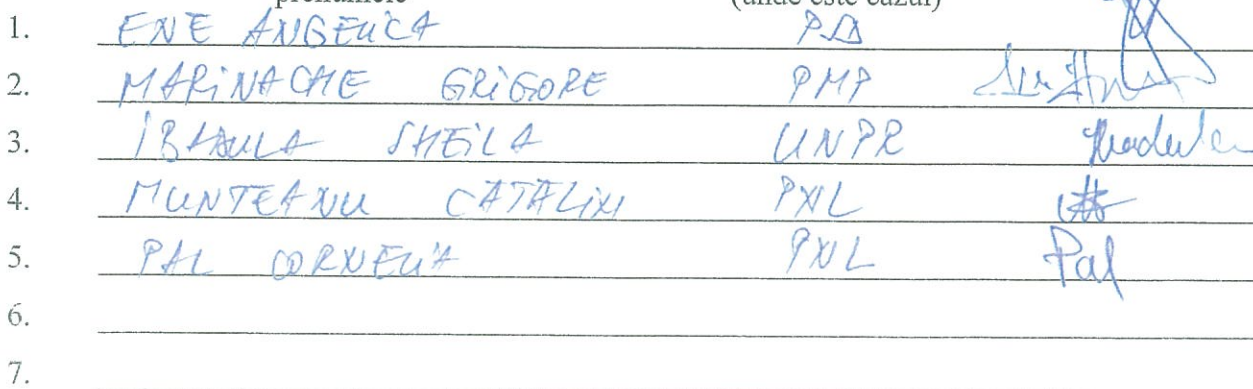 prenumele (unde este cazul)
1. ENE ANGELICA PD
2. MARINACHE GRIGORE PMP
3. SHEILA UNPR
4. MUNTEANU CATALIN PNL
5. PAL CORNELIA PNL Pal
6.
7.